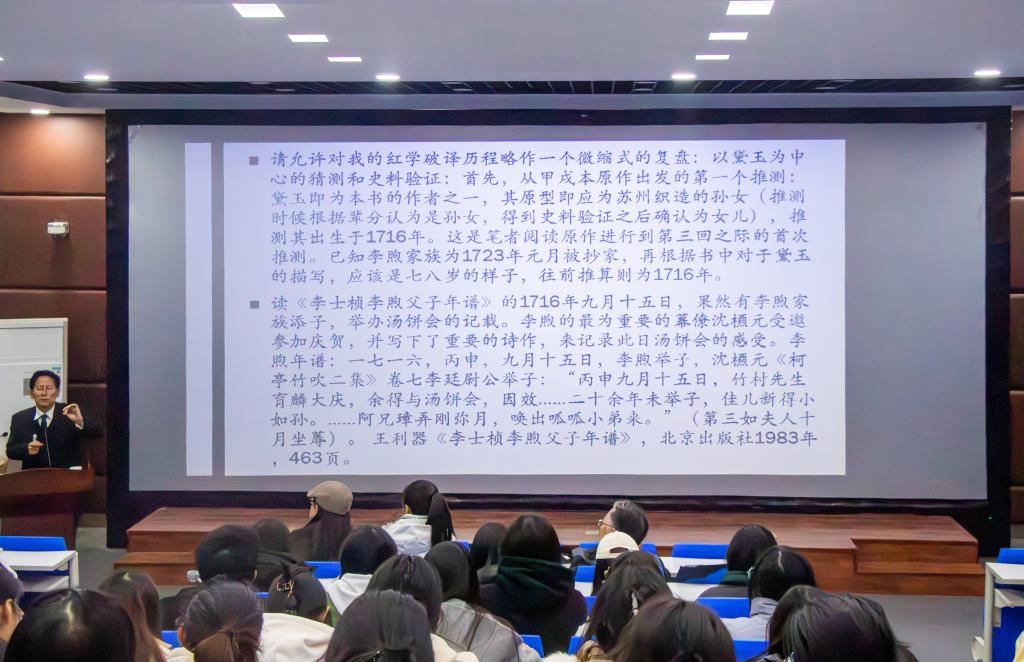 请允许对我的红学破译历程略作一个微缩式的复盘：以黛玉为中
心的猜测和史料验证：首先，从甲戌本原作出发的第一个推测：
黛玉即为本书的作者之一，其原型即应为苏州织造的孙女（推测
时候根据辈分认为是孙女，得到史料验证之后确认为女儿），推
测其出生于1716年。这是笔者阅读原作进行到第三回之际的首次
推测。已知李煦家族为1723年元月被抄家，再根据书中对于黛玉
的描写，应该是七八岁的样子，往前推算则为1716年。
读《李士桢李煦父子年谱》的1716年九月十五日，果然有李煦家
族添子，举办汤饼会的记载。李煦的最为重要的幕僚沈槱元受邀
参加庆贺，并写下了重要的诗作，来记录此日汤饼会的感受。李
煦年谱：一七一六，丙申，九月十五日，李煦举子，沈槱元《柯
亭竹吹二集》卷七李廷尉公举子：“丙申九月十五日，竹村先生
育麟大庆，余得与汤饼会，因效……二十余年未举子，佳儿新得小
如孙。……阿兄璋弄刚弥月，唤出呱呱小弟来。”（第三如夫人十
月坐蓐）。王利器《李士桢李煦父子年谱》，北京出版社1983年
，463页。